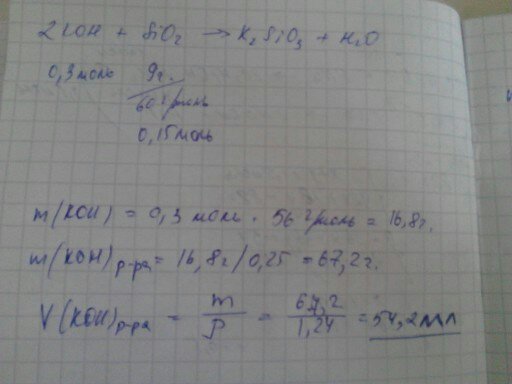 2KOH + SiO₂ → K₂SiO₃ + H₂O
0,3 моль 9г.
60 г/моль
0,15 моль
m(KOH) = 0,3 моль · 56 г/моль = 16,8г.
m(KOH)р-ра = 16,8г/0,25 = 67,2г.
V(KOH)р-ра = m/ρ = 67,2/1,24 = 54,2 мл